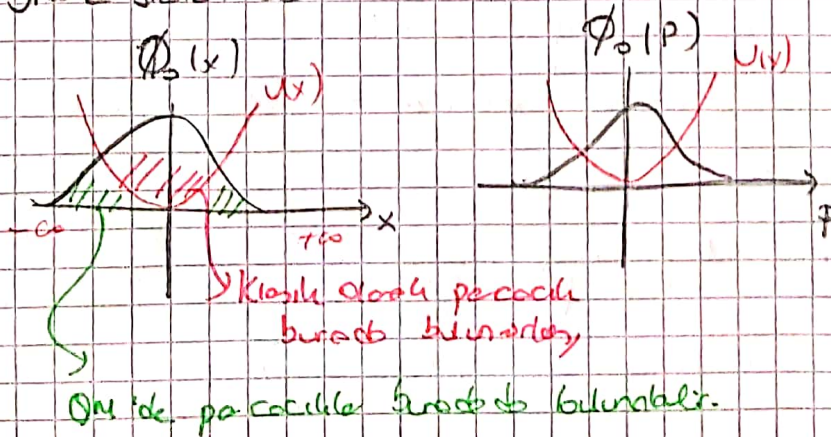 Φ₀(x)
U(x)
Φ₀(P)
U(x)
-∞
+∞
x
P
Klasik olarak parçacık
burada bulunabilir,
QM'de parçacıklar burada da bulunabilir.